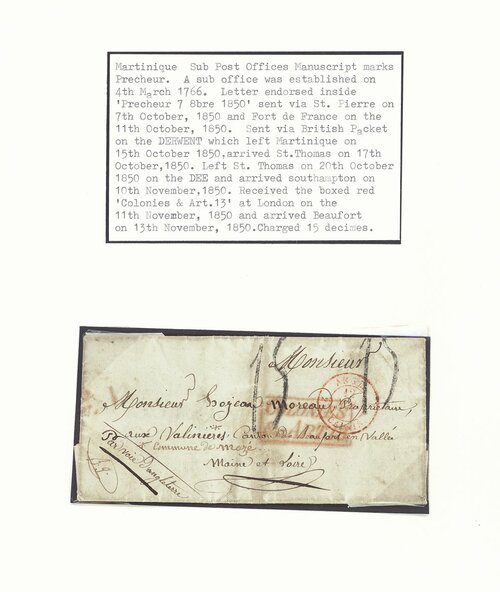 Martinique Sub Post Offices Manuscript marks
Precheur. A sub office was established on
4th March 1766. Letter endorsed inside
'Precheur 7 8bre 1850' sent via St. Pierre on
7th October, 1850 and Fort de France on the
11th October, 1850. Sent via British Packet
on the DERWENT which left Martinique on
15th October 1850,arrived St.Thomas on 17th
October,1850. Left St. Thomas on 20th October
1850 on the DEE and arrived southampton on
10th November,1850. Received the boxed red
'Colonies & Art.13' at London on the
11th November, 1850 and arrived Beaufort
on 13th November, 1850.Charged 15 decimes.
à Monsieur
15
à Monsieur Lojeau Moreau, Propriétaire,
aux Valinières, Canton de Beaufort en Vallée
Commune de Mazé
Maine et Loire
Par voie d'angleterre